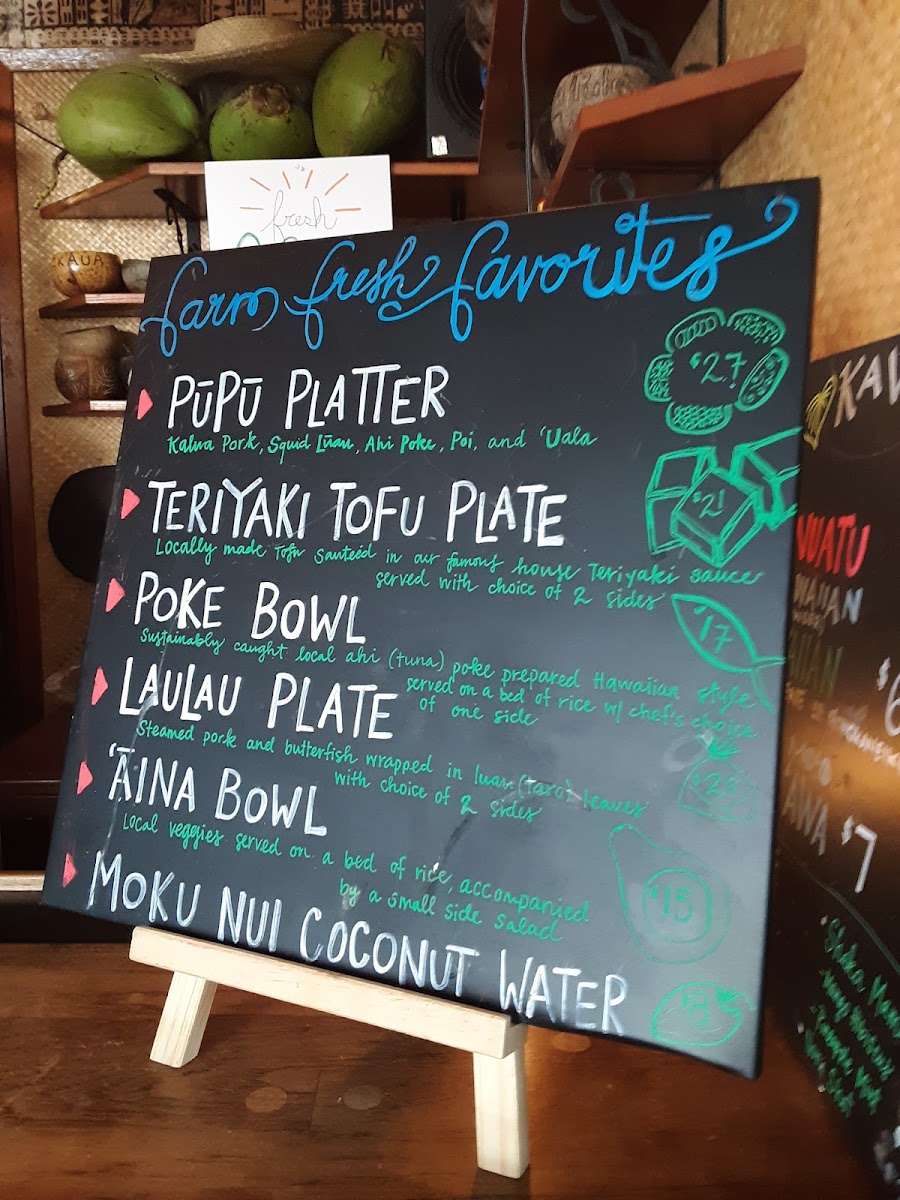 fresh
KAUA
farm fresh favorites
PŪPŪ PLATTER
$27
Kalua Pork, Squid Lūau, Ahi Poke, Poi, and ʻUala
TERIYAKI TOFU PLATE
$21
Locally made Tofu Sauteéd in our famous house Teriyaki sauce
served with choice of 2 sides
POKE BOWL
$17
Sustainably caught local ahi (tuna) poke prepared Hawaiian style
served on a bed of rice w/ chef's choice
of one side
LAULAU PLATE
Steamed pork and butterfish wrapped in luau (taro) leaves
with choice of 2 sides
ʻĀINA BOWL
$15
Local veggies served on a bed of rice, accompanied
by a small side salad
MOKU NUI COCONUT WATER
$8
KAV
WATU
AWA $7